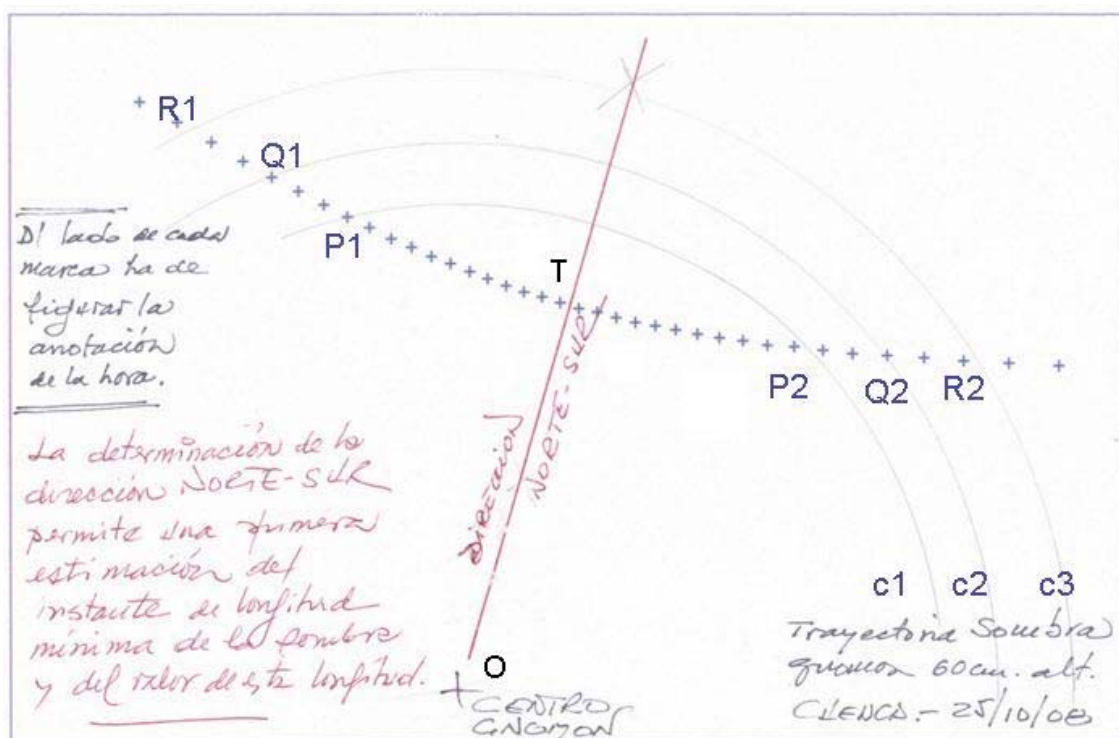 R1
Q1
P1
T
Al lado de cada
marca ha de
figurar la
anotación
de la hora.
P2
Q2
R2
DIRECCION
NORTE-SUR
La determinación de la
dirección NORTE-SUR
permite una primera
estimación del
instante de longitud
mínima de la sombra
y del valor de esta longitud.
c1
c2
c3
O
CENTRO
GNOMON
Trayectoria Sombra
gnomon 60cm. alt.
CUENCA.- 25/10/08